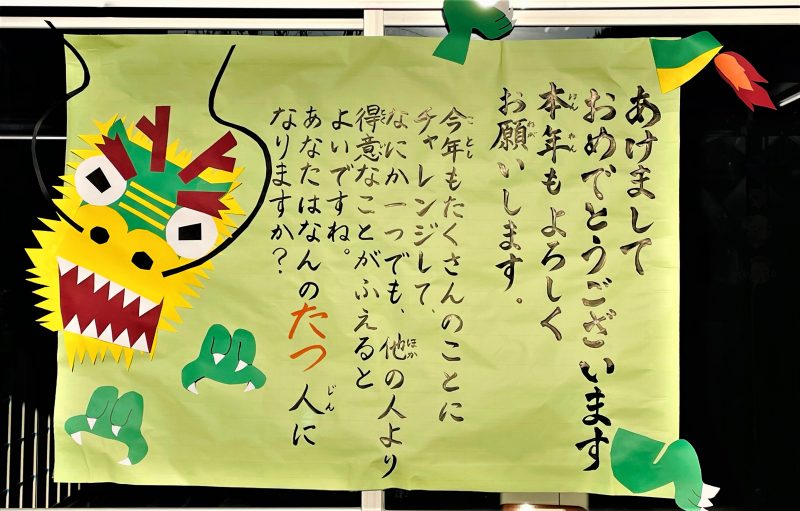 あけまして
おめでとうございます
本年もよろしく
お願いします。
今年もたくさんのことに
チャレンジして、
なにか一つでも、他の人より
得意なことがふえると
よいですね。
あなたはなんのたつ人に
なりますか？